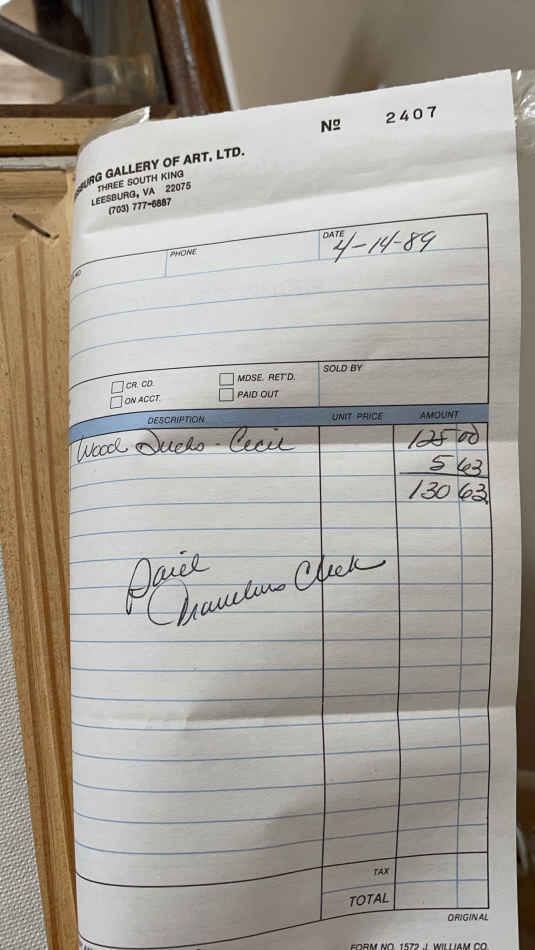 Nº 2407
SBURG GALLERY OF ART, LTD.
THREE SOUTH KING
LEESBURG, VA 22075
(703) 777-6887
PHONE
DATE
4-14-89
CR. CD.
MDSE. RET'D.
SOLD BY
ON ACCT.
PAID OUT
DESCRIPTION UNIT PRICE AMOUNT
Wood Ducks - Cecil 125 00
5 63
130 63
Paid
Travelers Check
TAX
TOTAL
ORIGINAL
FORM NO. 1572 J. WILLIAM CO.